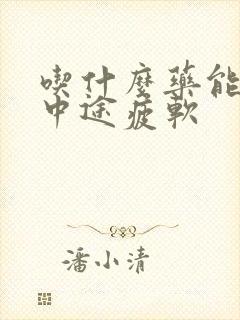 喫什麼藥能
中途疲軟
潘小清